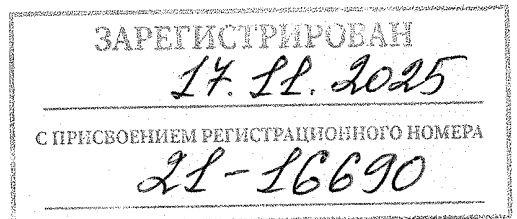 ЗАРЕГИСТРИРОВАН
17.11.2025
С ПРИСВОЕНИЕМ РЕГИСТРАЦИОННОГО НОМЕРА
21-16690